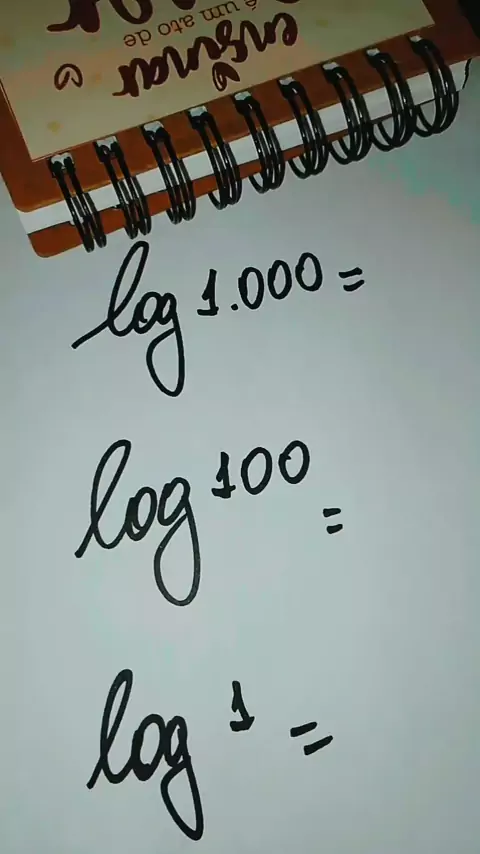 é um ato de
ensinar
log 1.000 =
log 100 =
log 1 =